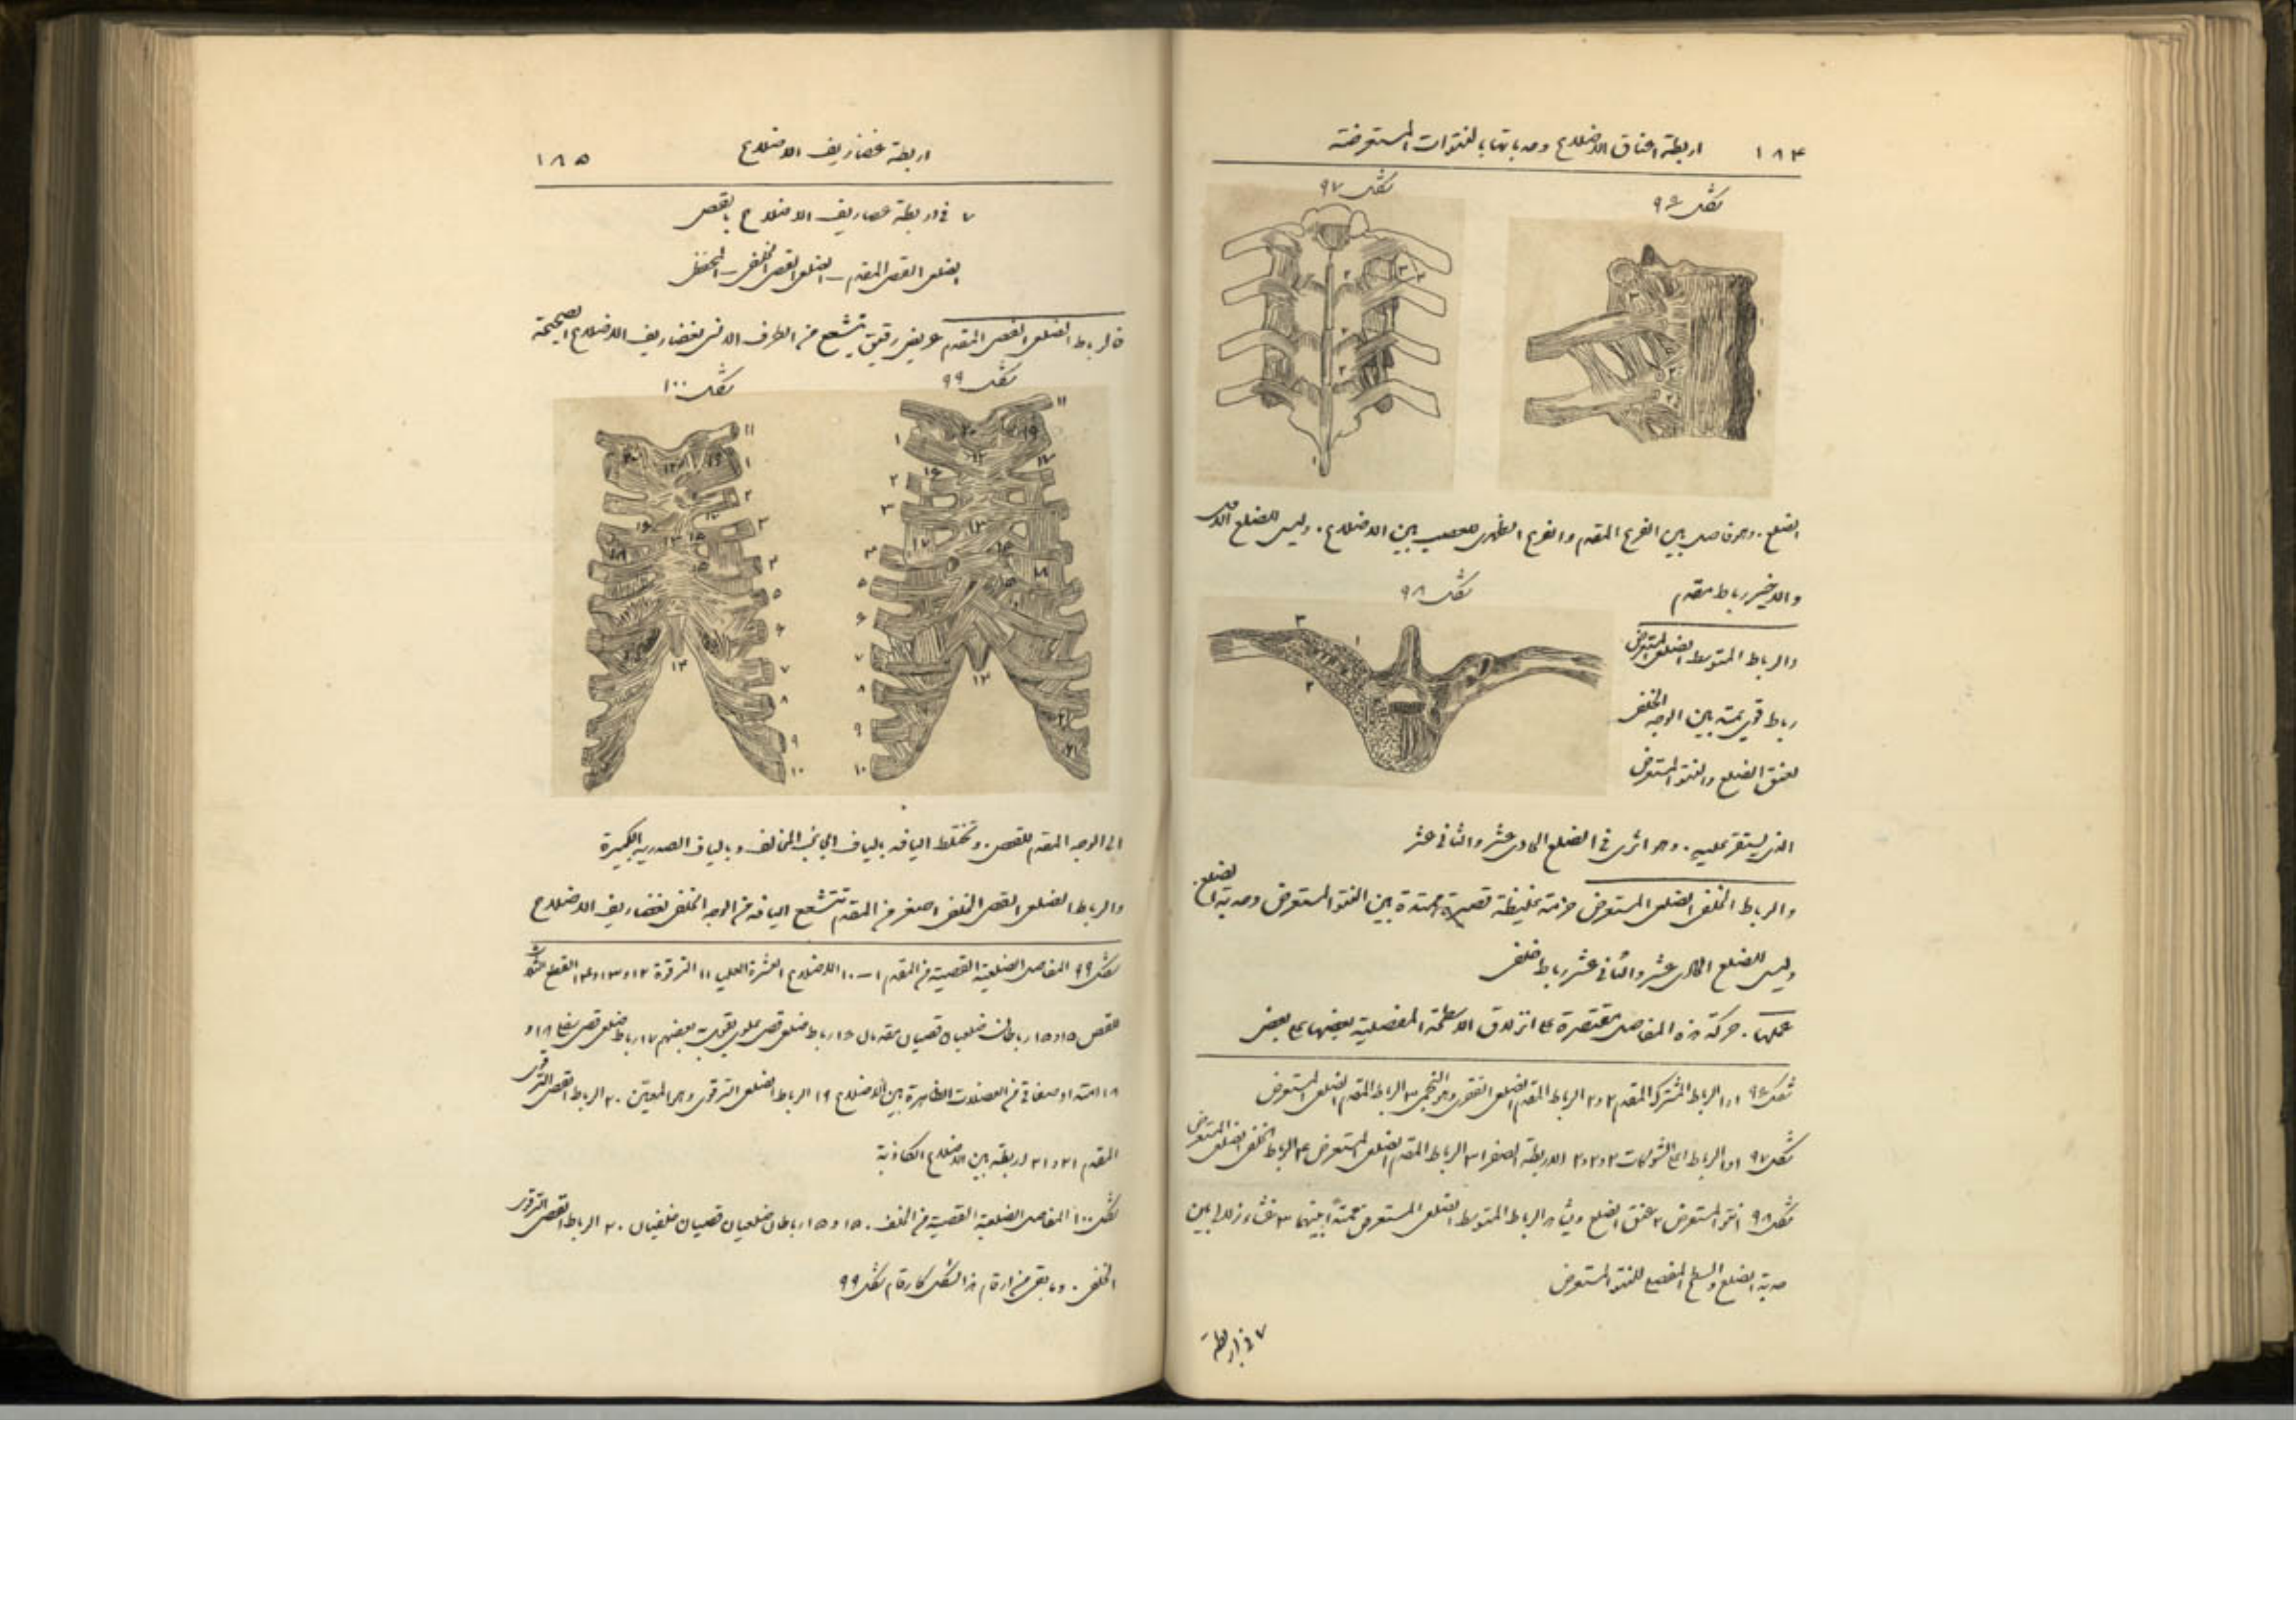 ١٨٤ اربطة اعناق الاضلاع وحدباتها بالنتوات المستعرضة
شكل ٩٦
شكل ٩٧
الضلع. وهو فاصل بين الفرع المقدم والفرع الظهري للعصب بين الاضلاع. وليس للضلع الاول
شكل ٩٨
والاخير رباط مقدم
والرباط المتوسط الضلعي المستعرض
رباط قوي يمتد بين الوجه الخلفي
لعنق الضلع والنتو المستعرض
الذي يستقر عليه. وهو اثري في الضلع الحادي عشر والثاني عشر
والرباط الخلفي الضلعي المستعرض حزمة غليظة قصيرة ممتدة بين النتو المستعرض وحدبة الضلع.
وليس للضلع الحادي عشر والثاني عشر رباط خلفي
عملها. حركة هذه المفاصل مقتصرة على انزلاق الاسطحة المفصلية بعضها على بعض
شكل ٩٦ ١و١ الرباط المشترك المقدم ٢و٢ الرباط المقدم الضلعي الفقري وهو النجمي ٣ الرباط المقدم الضلعي المستعرض
شكل ٩٧ ١و١ الرباط على الشوكات ٢و٢و٢ الاربطة الصفر ٣ الرباط المقدم الضلعي المستعرض ٤ الرباط الخلفي الضلعي المستعرض
شكل ٩٨ ١ النتو المستعرض ٢ عنق الضلع ويشاهد الرباط المتوسط الضلعي المستعرض ممتداً بينهما ٣ غشاء زلالي بين
حدبة الضلع والسطح المفصلي للنتو المستعرض
٧ في اربطة
اربطة غضاريف الاضلاع ١٨٥
٧ في اربطة غضاريف الاضلاع بالقص
الضلعي القصي المقدم – الضلعي القصي الخلفي – المحفظي
فالرباط الضلعي القصي المقدم عريض رقيق يتشعع من الطرف الانسي لغضاريف الاضلاع الصحيحة
شكل ٩٩
شكل ١٠٠
الى الوجه المقدم للقص. وتختلط اليافه بالياف الجانب المخالف وبالياف الصدرية الكبيرة
والرباط الضلعي القصي الخلفي اصغر من المقدم تتشعع اليافه من الوجه الخلفي لغضاريف الاضلاع
شكل ٩٩ المفاصل الضلعية القصية من المقدم ١–١٠ الاضلاع العشرة العليا ١١ الترقوة ١٢ و١٣ و١٤ القطع الثلاث
للقص ١٥و١٥ رباطان ضلعيان قصيان مقدمان ١٦ رباط ضلعي قصي علوي ١٧ رباط ضلعي قصي سفلي ١٨ و
١٨ امتداد صفاقي من العضلات الظاهرة بين الاضلاع ١٩ الرباط الضلعي الترقوي وهو المعيني ٢٠ الرباط القصي الترقوي
المقدم ٢١ و٢١ اربطة بين الاضلاع الكاذبة
شكل ١٠٠ المفاصل الضلعية القصية من الخلف. ١٥ و١٥ رباطان ضلعيان قصيان خلفيان ٢٠ الرباط القصي الترقوي
الخلفي. وما بقي من ارقام هذا الشكل كارقام شكل ٩٩